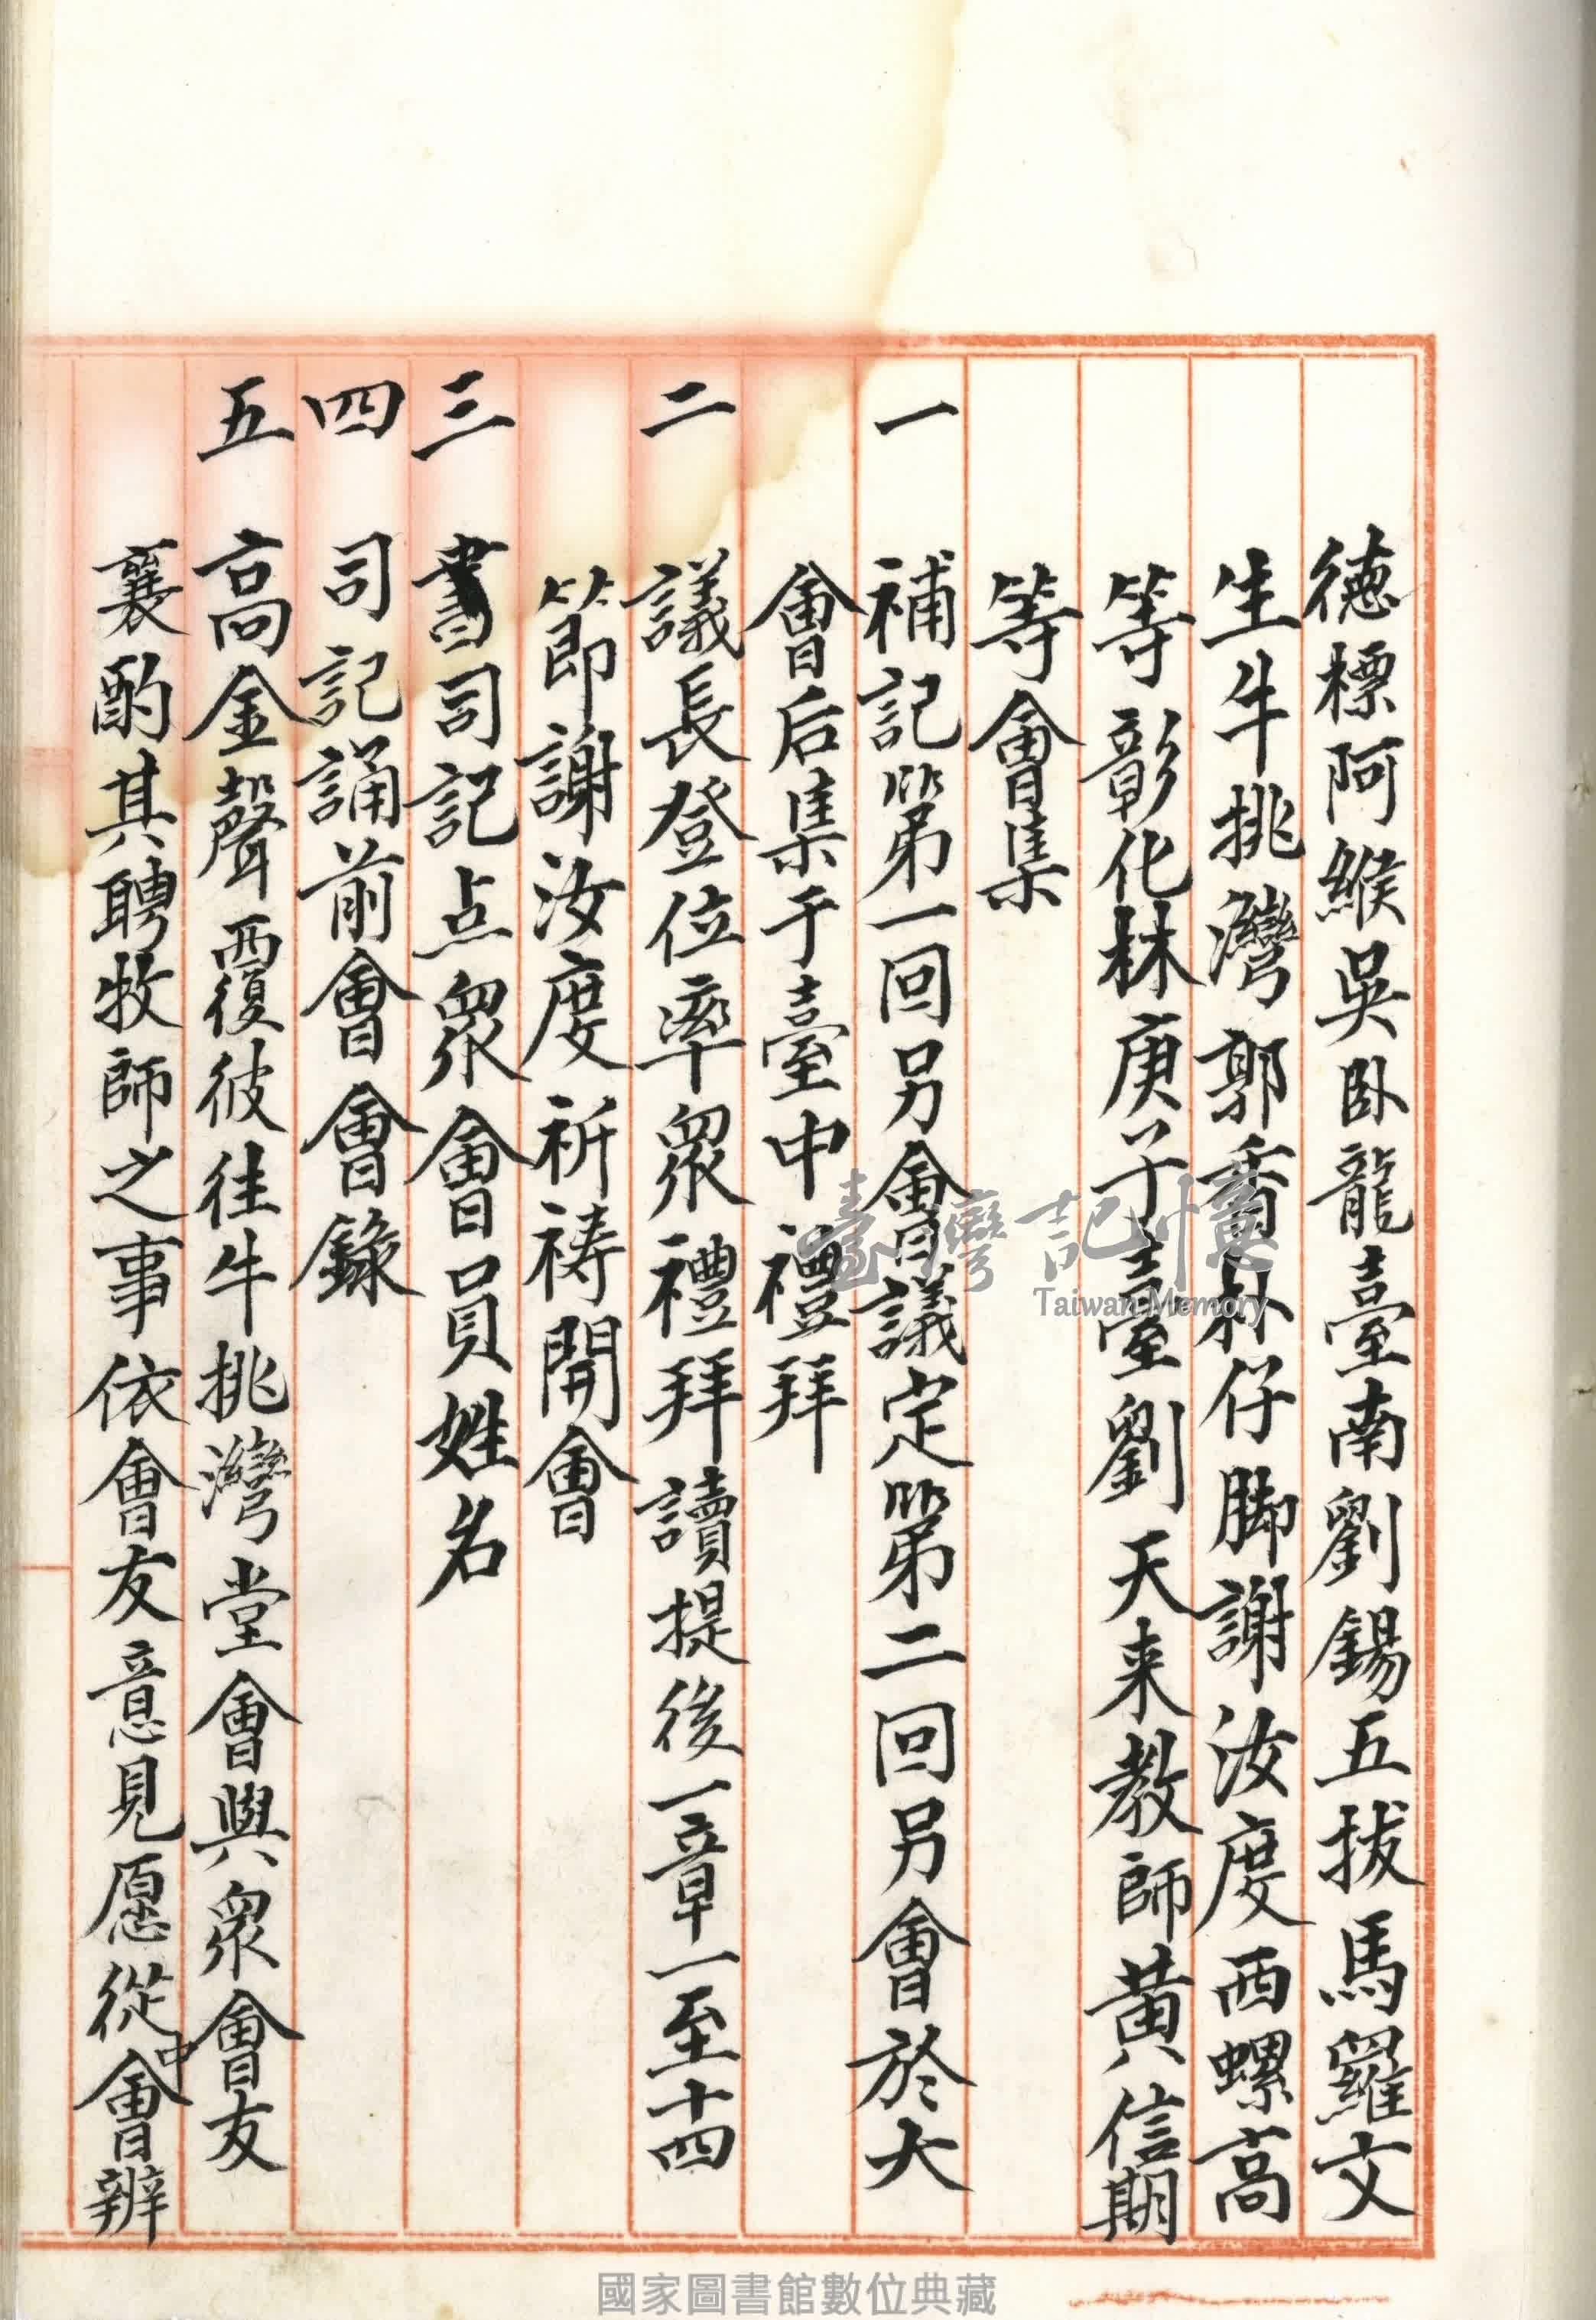 德標阿緱吳卧龍臺南劉錫五拔馬羅文
生牛挑灣郭香朴仔脚謝汝度西螺高
等彰化林庚子臺劉天来教師黄信期
等會集
一 補記第一回另會議定第二回另會於大
會后集于臺中禮拜
二 議長登位率眾禮拜讀提後一章一至十四
節謝汝度祈祷開會
三 書司記点眾會員姓名
四 司記誦前會會錄
五 高金聲覆彼徃牛挑灣堂會與眾會友
襄酌其聘牧師之事依會友意見愿從中會辨
臺灣記憶
Taiwan Memory
國家圖書館數位典藏